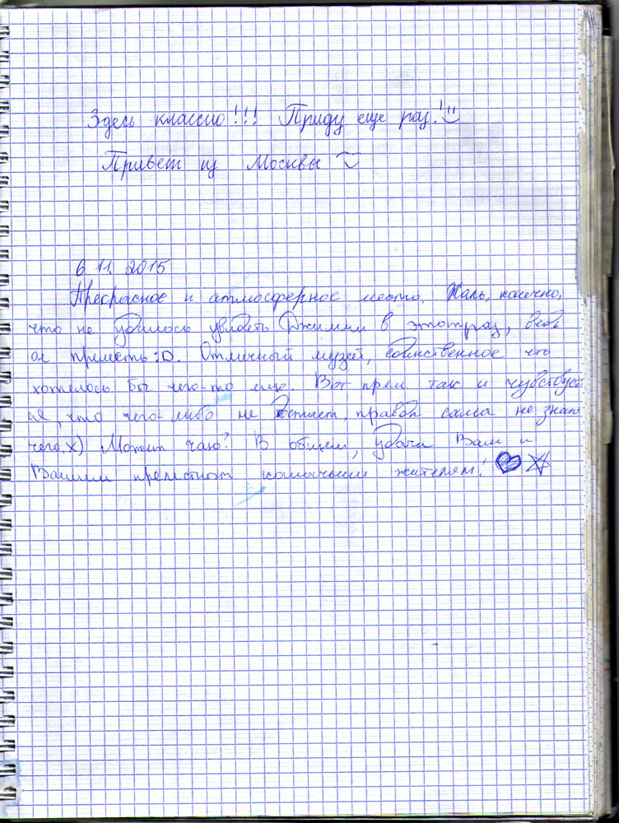 Здесь классно!!! Приду еще раз!
Привет из Москвы
6.11.2015
Прекрасное и атмосферное место. Жаль, конечно,
что не удалось увидеть Джимми в этот раз, ведь
он прелесть :D. Отличный музей, единственное что
хотелось бы чего-то еще. Вот прям так и чувствует
ся, что чего-либо не достает, правда сама не знаю
чего.х) Может чаю? В общем, удачи Вам и
Вашим прелестным кошачьим жителям!